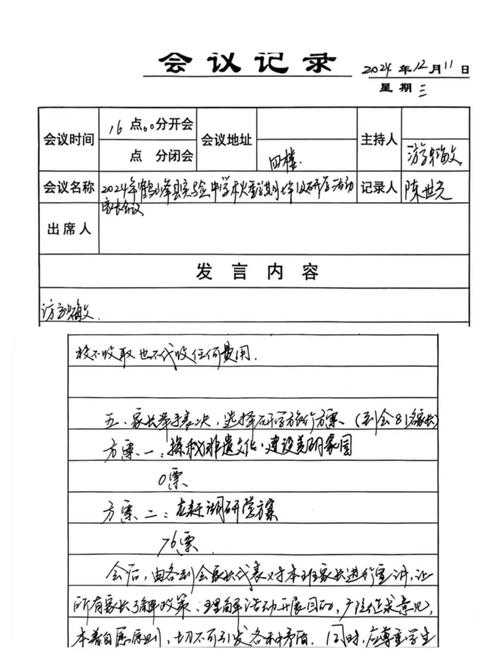 会议记录
2024年12月11日
星期三
会议时间 16点00分开会 会议地址 四楼 主持人
点 分闭会
会议名称 2024年鹤峰县实验中学 研学活动 记录人 陈世
家长会议
出席人
发言内容
校不收取也不代收任何费用.
五、家长举手表决，选择研学旅行方案。(到会81家长)
方案一：探秘非遗文化·建设美丽家园
0票
方案二： 研学方案
76票
会后，由各到会家长代表对本班家长进行宣讲，让
所有家长了解政策、理解活动开展目的，广泛征求意见，
本着自愿原则，切不可引发各种矛盾。同时，应尊重学生